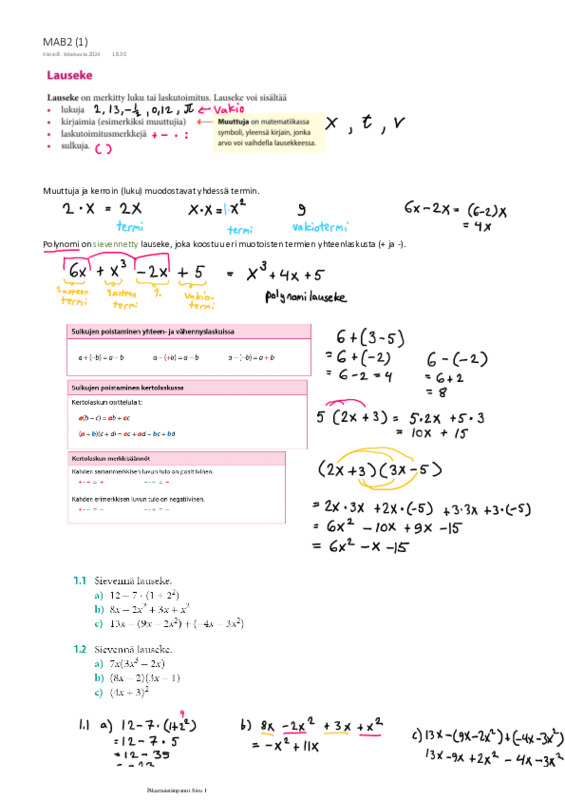 MAB2 (1)
Lauseke
Lauseke on merkitty luku tai laskutoimitus. Lauseke voi sisältää
• lukuja 2, 13, -½, 0,12, π ← Vakio
• kirjaimia (esimerkiksi muuttujia) ←
• laskutoimitusmerkkejä + - · :
• sulkuja. ( )
Muuttuja on matematiikassa
symboli, yleensä kirjain, jonka
arvo voi vaihdella lausekkeessa.
x, t, v
Muuttuja ja kerroin (luku) muodostavat yhdessä termin.
2 · x = 2x
termi
x·x = 1·x²
termi
9
vakiotermi
6x - 2x = (6-2)x
= 4x
Polynomi on sievennetty lauseke, joka koostuu eri muotoisten termien yhteenlaskusta (+ ja -).
6x + x³ - 2x + 5 = x³ + 4x + 5
termi
termi
vakio-
termi
polynomi lauseke
Sulkujen poistaminen yhteen- ja vähennyslaskuissa
a + (-b) = a - b a - (+b) = a - b a - (-b) = a + b
Sulkujen poistaminen kertolaskussa
Kertolaskun osittelulait:
a(b - c) = ab + ac
(a + b)(c + d) = ac + ad + bc + bd
Kertolaskun merkkisäännöt
Kahden samanmerkkisen luvun tulo on positiivinen.
+ · + = + - · - = +
Kahden erimerkkisen luvun tulo on negatiivinen.
+ · - = - - · + = -
6 + (3 - 5)
= 6 + (-2)
= 6 - 2 = 4
6 - (-2)
= 6 + 2
= 8
5 (2x + 3) = 5·2x + 5·3
= 10x + 15
(2x+3)(3x-5)
= 2x·3x + 2x·(-5) + 3·3x + 3·(-5)
= 6x² - 10x + 9x - 15
= 6x² - x - 15
1.1 Sievennä lauseke.
a) 12 - 7 · (1 + 2²)
b) 8x - 2x² + 3x + x²
c) 13x - (9x - 2x²) + (-4x - 3x²)
1.2 Sievennä lauseke.
a) 7x(3x³ - 2x)
b) (8x - 2)(3x - 1)
c) (4x + 3)²
1.1 a) 12 - 7·(1+2²)
4
= 12 - 7 · 5
= 12 - 35
b) 8x - 2x² + 3x + x²
= -x² + 11x
c) 13x - (9x - 2x²) + (-4x - 3x²)
13x - 9x + 2x² - 4x - 3x²